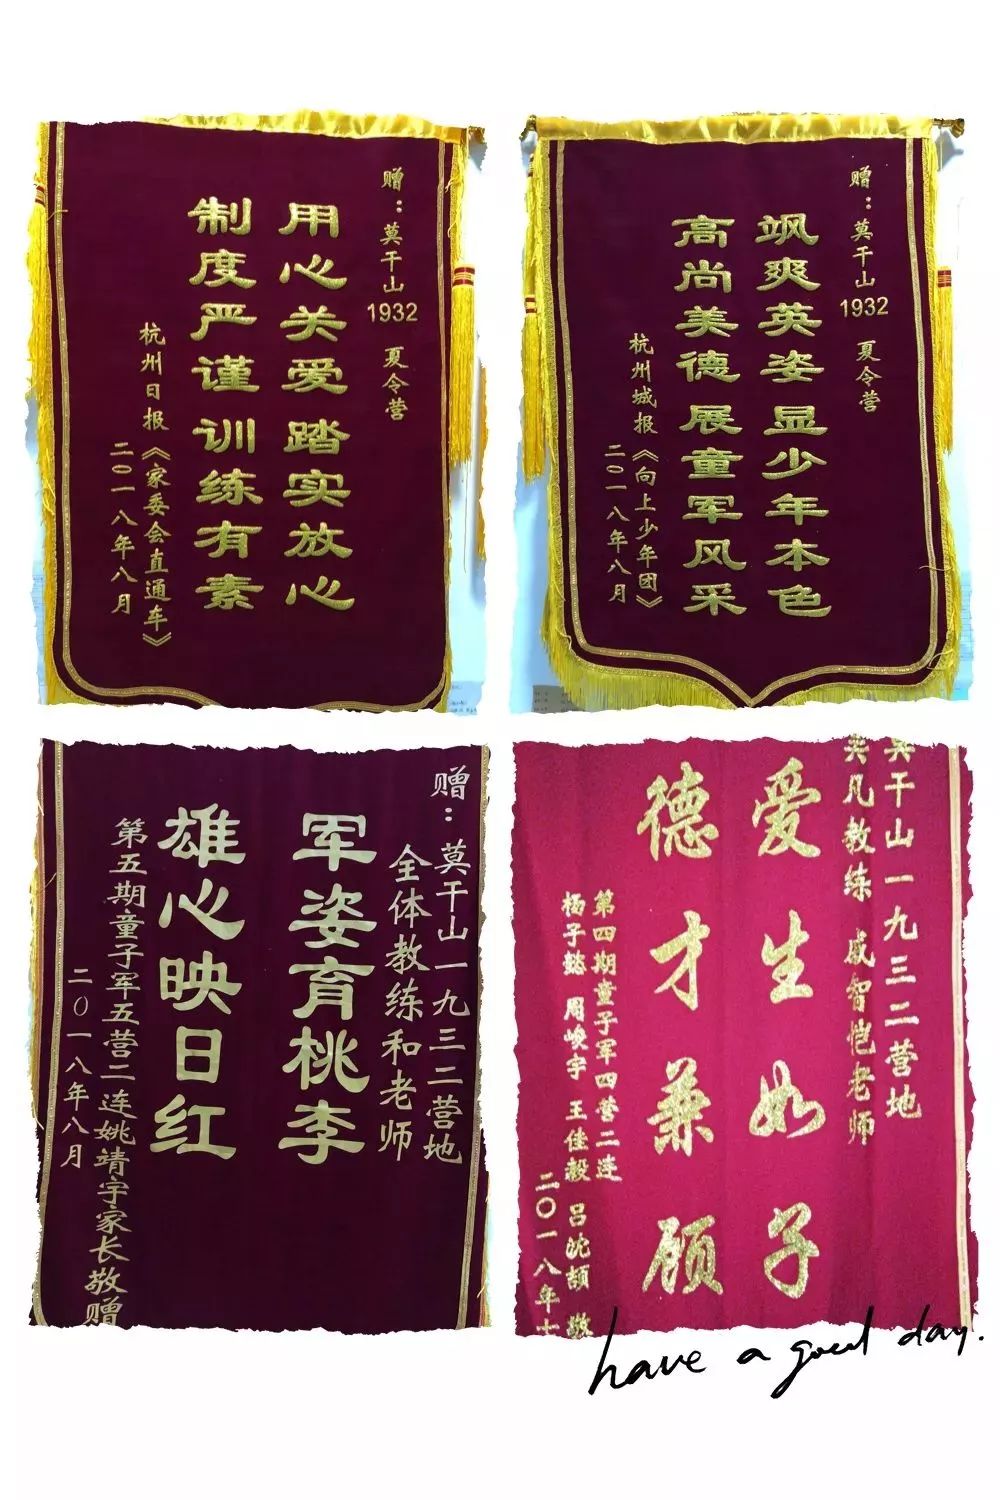 赠：莫干山1932 夏令营
用心关爱 踏实放心
制度严谨 训练有素
杭州日报《家委会直通车》
二〇一八年八月
赠：莫干山1932 夏令营
飒爽英姿 显少年本色
高尚美德 展童军风采
杭州城报《向上少年团》
二〇一八年八月
赠：莫干山一九三二营地
全体教练和老师
军姿育桃李
雄心映日红
第五期童子军五营二连姚靖宇家长敬赠
二〇一八年八月
干山一九三二营地
凡教练 戚智恺老师
爱生如子
德才兼顾
第四期童子军四营二连
杨子懿 周峻宇 王佳毅 吕沈颉
二〇一八年七
have a good day.